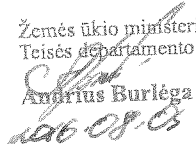 Žemės ūkio minister
Teisės departamento
Andrius Burlėga
2016-08-03